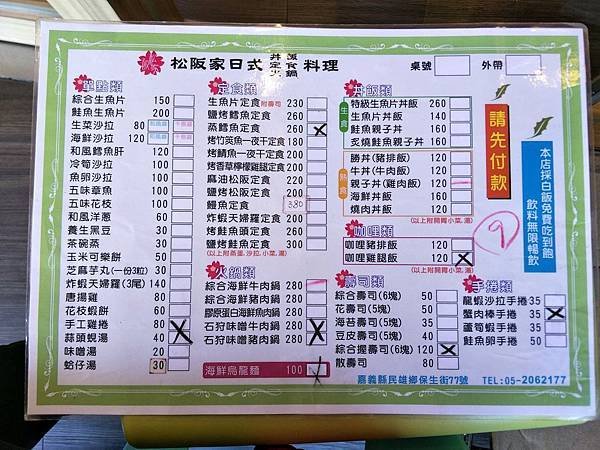 松阪家日式 丼蓋 定食 火鍋 料理
桌號
外帶
單點類
綜合生魚片 150
鮭魚生魚片 200
生菜沙拉 80 和風醬 千島醬
海鮮沙拉 120 和風醬 千島醬
和風鱈魚肝 120
冷筍沙拉 100
魚卵沙拉 100
五味章魚 100
五味花枝 100
和風洋蔥 60
養生黑豆 30
茶碗蒸 30
玉米可樂餅 50
芝麻芋丸(一份3粒) 30
炸蝦天婦羅(3尾) 140
唐揚雞 80
花枝蝦餅 60
手工雞捲 80
蒜頭蜆湯 40
味噌湯 20
蛤仔湯 30
定食類
生魚片定食附壽司 230
鹽烤鱈魚定食 260
蒸鱈魚定食 260
烤竹筴魚一夜干定食 180
烤鯖魚一夜干定食 180
烤香草檸檬雞腿定食 180
麻油松阪定食 220
鹽烤松阪定食 220
鰻魚定食 380
炸蝦天婦羅定食 200
烤鮭魚頭定食 200
鹽烤鮭魚定食 300
(以上附蒸蛋,沙拉,小菜,湯)
火鍋類
綜合海鮮牛肉鍋 280
綜合海鮮豬肉鍋 280
膠原蛋白海鮮魚肉鍋 280
石狩味噌牛肉鍋 280
石狩味噌豬肉鍋 280
海鮮烏龍麵 100
丼飯類
生食
特級生魚片丼飯 260
生魚片丼飯 140
鮭魚親子丼 260
炙燒鮭魚親子丼 260
熟食
勝丼(豬排飯) 120
牛丼(牛肉飯) 120
親子丼(雞肉飯) 120
海鮮丼飯 160
燒肉丼飯 120
(以上附開胃小菜,湯)
咖哩類
咖哩豬排飯 120
咖哩雞腿飯 120
(以上附開胃小菜,湯)
壽司類
綜合壽司(6塊) 50
花壽司(5塊) 40
海苔壽司(5塊) 40
豆皮壽司(5塊) 40
綜合握壽司(6塊) 120
散壽司 80
手捲類
龍蝦沙拉手捲 35
蟹肉棒手捲 35
蘆筍蝦手捲 35
鮭魚卵手捲 50
請先付款
本店採白飯免費吃到飽
飲料無限暢飲
9
嘉義縣民雄鄉保生街77號 TEL:05-2062177